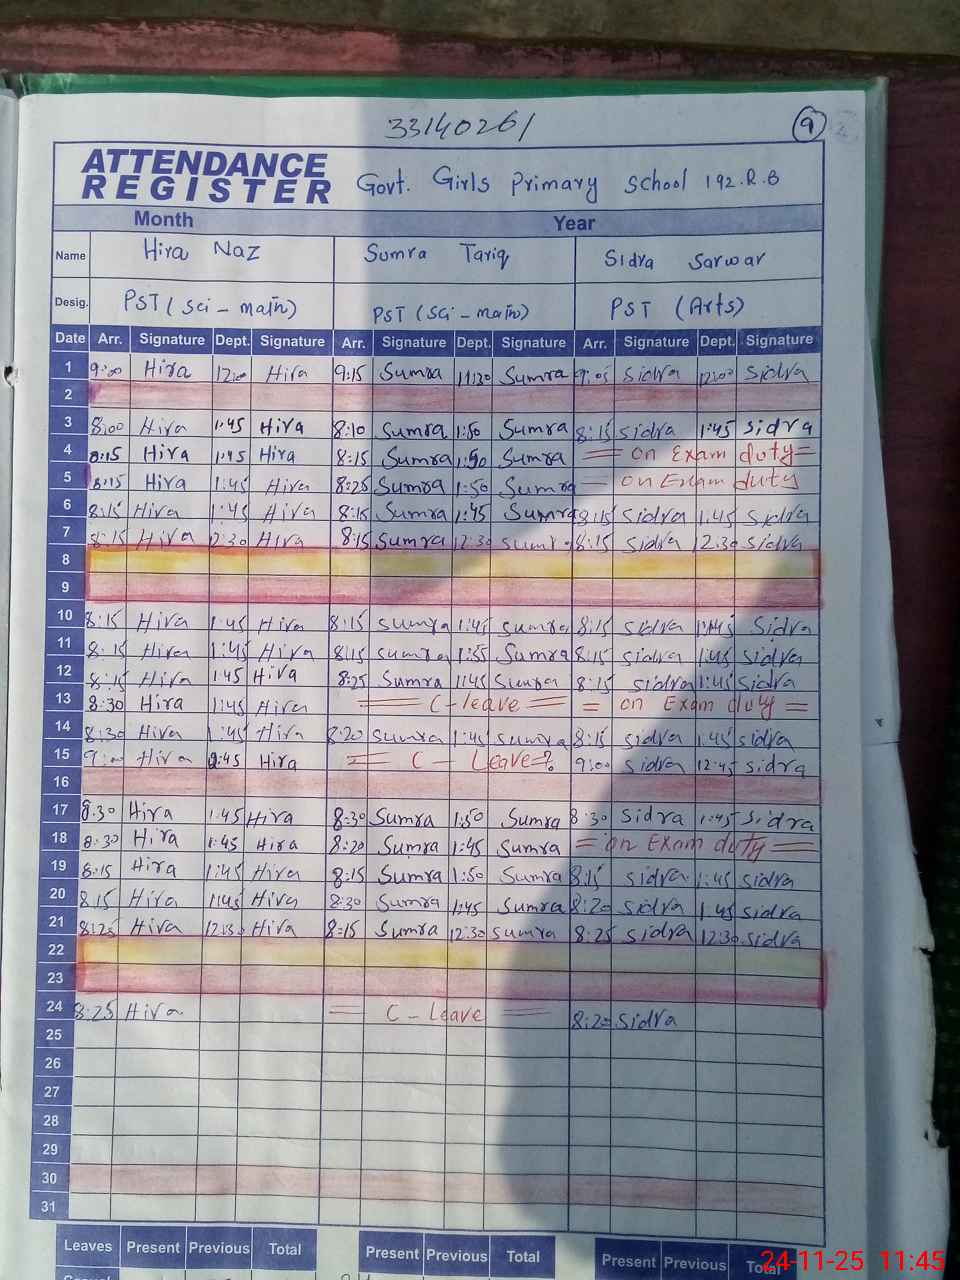 33140261
9
ATTENDANCE REGISTER Govt. Girls Primary School 192.R.B
Month Year
Name Hira Naz Sumra Tariq Sidra Sarwar
Desig. PST (Sci - math) PST (Sci - math) PST (Arts)
Date Arr. Signature Dept. Signature Arr. Signature Dept. Signature Arr. Signature Dept. Signature
1 9:00 Hira 12:00 Hira 9:15 Sumra 11:30 Sumra 9:05 Sidra 12:00 Sidra
2
3 8:00 Hira 1:45 Hira 8:10 Sumra 1:50 Sumra 8:15 Sidra 1:45 Sidra
4 8:15 Hira 1:45 Hira 8:15 Sumra 1:50 Sumra = on Exam duty =
5 8:15 Hira 1:45 Hira 8:25 Sumra 1:50 Sumra = on Exam duty
6 8:15 Hira 1:45 Hira 8:15 Sumra 1:45 Sumra 8:15 Sidra 1:45 Sidra
7 8:15 Hira 12:30 Hira 8:15 Sumra 12:30 Sumra 8:15 Sidra 12:30 Sidra
8
9
10 8:15 Hira 1:45 Hira 8:15 Sumra 1:45 Sumra 8:15 Sidra 1:45 Sidra
11 8:15 Hira 1:45 Hira 8:15 Sumra 1:55 Sumra 8:15 Sidra 1:45 Sidra
12 8:15 Hira 1:45 Hira 8:25 Sumra 1:45 Sumra 8:15 Sidra 1:45 Sidra
13 8:30 Hira 1:45 Hira = C-leave = = on Exam duty =
14 8:30 Hira 1:45 Hira 8:20 Sumra 1:45 Sumra 8:15 Sidra 1:45 Sidra
15 9:00 Hira 12:45 Hira = C - Leave = 9:00 Sidra 12:45 Sidra
16
17 8:30 Hira 1:45 Hira 8:30 Sumra 1:50 Sumra 8:30 Sidra 1:45 Sidra
18 8:30 Hira 1:45 Hira 8:20 Sumra 1:45 Sumra = on Exam duty =
19 8:15 Hira 1:45 Hira 8:15 Sumra 1:50 Sumra 8:15 Sidra 1:45 Sidra
20 8:15 Hira 1:45 Hira 8:30 Sumra 1:45 Sumra 8:20 Sidra 1:45 Sidra
21 8:25 Hira 12:30 Hira 8:15 Sumra 12:30 Sumra 8:25 Sidra 12:30 Sidra
22
23
24 8:25 Hira = C - Leave = 8:20 Sidra
25
26
27
28
29
30
31
Leaves Present Previous Total Present Previous Total Present Previous Total
24-11-25 11:45